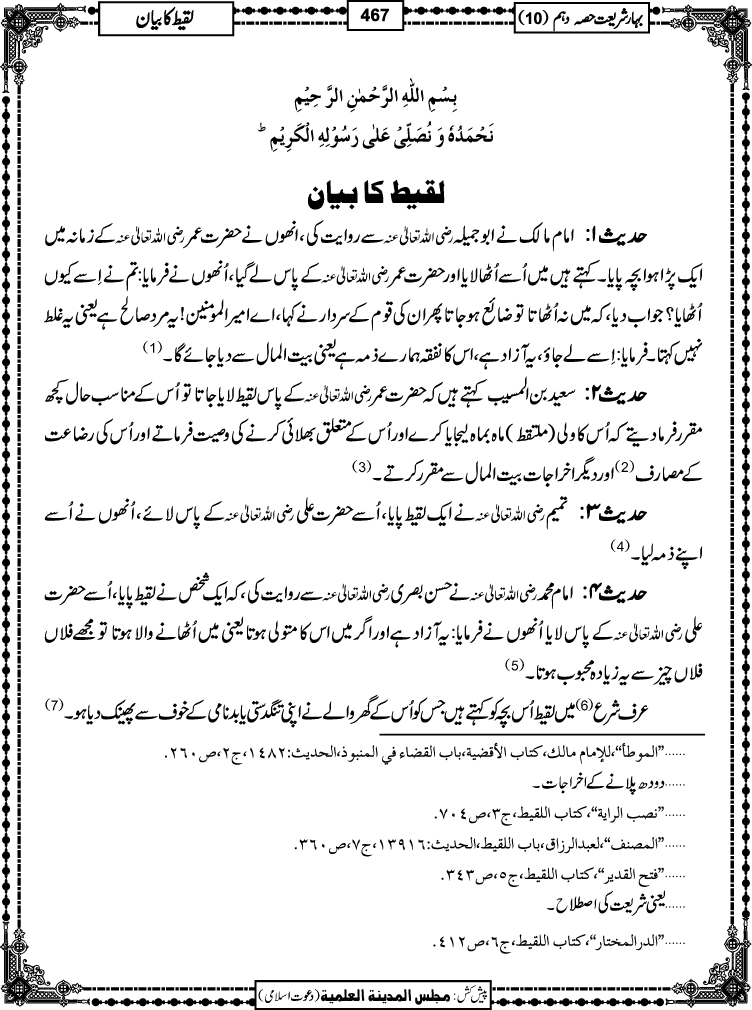 بہارِ شریعت حصہ دہم (10)
467
لقیط کا بیان
بِسْمِ اللهِ الرَّحْمٰنِ الرَّحِيْمِ
نَحْمَدُهٗ وَ نُصَلِّیْ عَلٰی رَسُوْلِهِ الْکَرِیْمِ ؕ
لقیط کا بیان
حدیث ۱: امام مالک نے ابو جمیلہ رضی اللہ تعالیٰ عنہ سے روایت کی، انھوں نے حضرت عمر رضی اللہ تعالیٰ عنہ کے زمانہ میں
ایک پڑا ہوا بچہ پایا۔ کہتے ہیں میں اُسے اُٹھا لایا اور حضرت عمر رضی اللہ تعالیٰ عنہ کے پاس لے گیا، اُنھوں نے فرمایا: تم نے اِسے کیوں
اُٹھایا؟ جواب دیا، کہ میں نہ اُٹھاتا تو ضائع ہو جاتا پھر ان کی قوم کے سردار نے کہا، اے امیر المومنین! یہ مرد صالح ہے یعنی یہ غلط
نہیں کہتا۔ فرمایا: اِسے لے جاؤ، یہ آزاد ہے، اس کا نفقہ ہمارے ذمہ ہے یعنی بیت المال سے دیا جائے گا۔ (1)
حدیث ۲: سعید بن المسیب کہتے ہیں کہ حضرت عمر رضی اللہ تعالیٰ عنہ کے پاس لقیط لایا جاتا تو اُس کے مناسب حال کچھ
مقرر فرما دیتے کہ اُس کا ولی (ملتقط) ماہ بماہ لیجایا کرے اور اُس کے متعلق بھلائی کرنے کی وصیت فرماتے اور اُس کی رضاعت
کے مصارف (2) اور دیگر اخراجات بیت المال سے مقرر کرتے۔ (3)
حدیث ۳: تمیم رضی اللہ تعالیٰ عنہ نے ایک لقیط پایا، اُسے حضرت علی رضی اللہ تعالیٰ عنہ کے پاس لائے، اُنھوں نے اُسے
اپنے ذمہ لیا۔ (4)
حدیث ۴: امام محمد رضی اللہ تعالیٰ عنہ نے حسن بصری رضی اللہ تعالیٰ عنہ سے روایت کی، کہ ایک شخص نے لقیط پایا، اُسے حضرت
علی رضی اللہ تعالیٰ عنہ کے پاس لایا اُنھوں نے فرمایا: یہ آزاد ہے اور اگر میں اس کا متولی ہوتا یعنی میں اُٹھانے والا ہوتا تو مجھے فلاں
فلاں چیز سے یہ زیادہ محبوب ہوتا۔ (5)
عرف شرع (6) میں لقیط اُس بچہ کو کہتے ہیں جس کو اُس کے گھر والے نے اپنی تنگدستی یا بدنامی کے خوف سے پھینک دیا ہو۔ (7)
......"الموطأ"، للإمام مالك، كتاب الأقضية، باب القضاء في المنبوذ، الحديث: ١٤٨٢، ج٢، ص٢٦٠.
......دودھ پلانے کے اخراجات۔
......"نصب الراية"، كتاب اللقيط، ج٣، ص٧٠٤.
......"المصنف"، لعبدالرزاق، باب اللقيط، الحديث: ١٣٩١٦، ج٧، ص٣٦٠.
......"فتح القدير"، كتاب اللقيط، ج٥، ص٣٤٣.
......یعنی شریعت کی اصطلاح۔
......"الدرالمختار"، كتاب اللقيط، ج٦، ص٤١٢.
پیش کش: مجلس المدینۃ العلمیۃ (دعوت اسلامی)